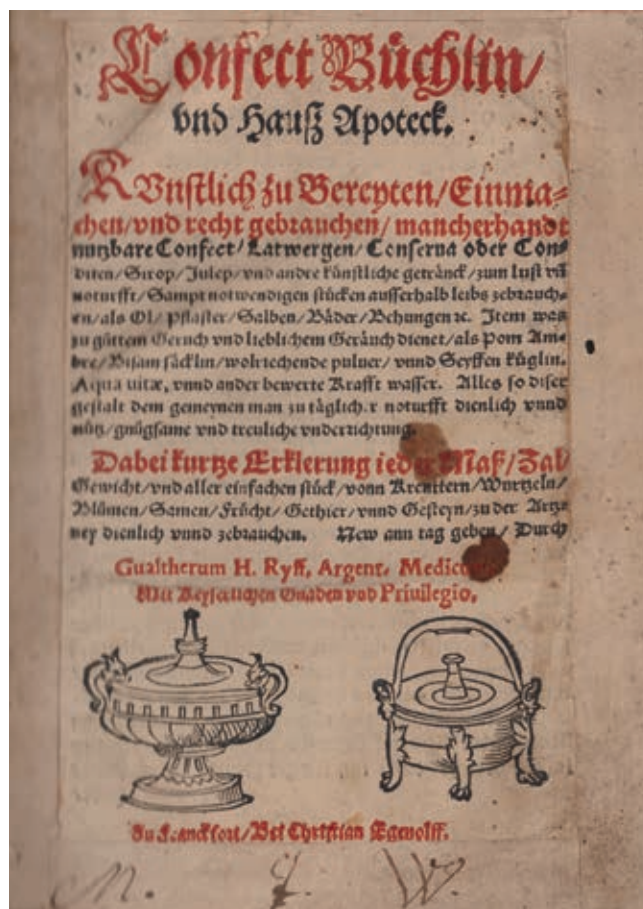 Confect Büchlin/
vnd Hauß Apoteck.
KVnstlich zu Bereyten/Einma-
chen/vnd recht gebrauchen/mancherhandt
nutzbare Confect/Latwergen/Conserua oder Con-
diten/Sirop/Julep/vnd andre künstliche getränck/zum lust vñ
noturfft/Sampt notwendigen stücken ausserhalb leibs zebrauch-
en/als Ol/Pflaster/Salben/Bäder/Behungen ꝛc. Item was
zu gůttem Geruch vnd lieblichem Geräuch dienet/als Pom Am-
bre/Bisam säcklin/wolriechende puluer/vnnd Seyffen küglin.
Aqua uitæ, vnnd ander bewerte Krafft wasser. Alles so diser
gestalt dem gemeynen man zu täglich.r noturfft dienlich vnnd
nütz/gnůgsame vnd treuliche vnderrichtung.
Dabei kurtze Erklerung ieder Maß/Zal/
Gewicht/vnd aller einfachen stück/vonn Kreuttern/Wurtzeln/
Blůmen/Samen/Frücht/Gethier/vnnd Gesteyn/zu der Artz-
ney dienlich vnnd zebrauchen. New ann tag geben/Durch
Gualtherum H. Ryff, Argent. Medicum.
Mit Keyserlichen Gnaden vnd Priuilegio.
Zu Franckfort/Bei Christian Egenolff.
M. J. W.